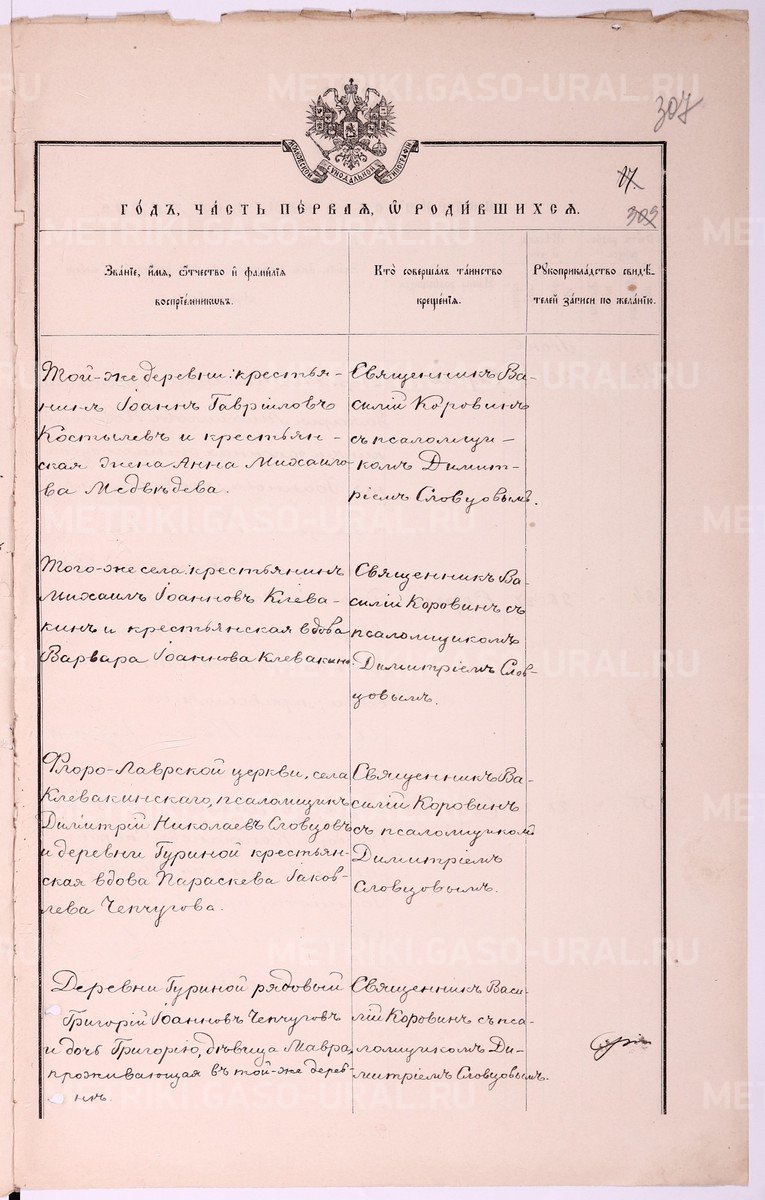 METRIKI.GASO-URAL.RU
307
МОСКОВСКОЙ СѴНОДАЛЬНОЙ ТИПОГРАФІИ
17
303
ГОДЪ, ЧАСТЬ ПЕРВАЯ, Ѿ РОДИВШИХСЯ.
Званіе, имя, отчество и фамилія
воспріемниковъ.
Кто совершалъ таинство
крещенія.
Рукоприкладство свидѣ-
телей записи по желанію.
Той-же деревни: крестья-
нинъ Іоаннъ Гавріиловъ
Костылевъ и крестьян-
ская жена Анна Михаило-
ва Медвѣдева.
Священникъ Ва-
силій Коровинъ
съ псаломщи-
комъ Димит-
ріемъ Словцовымъ.
Того-же села: крестьянинъ
Михаилъ Іоанновъ Клева-
кинъ и крестьянская вдова
Варвара Іоаннова Клевакина.
Священникъ Ва-
силій Коровинъ съ
псаломщикомъ
Димитріемъ Слов-
цовымъ.
Флоро-Лаврской церкви, села
Клевакинскаго, псаломщикъ
Димитрій Николаевъ Словцовъ
и деревни Гуриной крестьян-
ская вдова Параскева Іаков-
лева Чепчугова.
Священникъ Ва-
силій Коровинъ
съ псаломщикомъ
Димитріемъ
Словцовымъ.
Деревни Гуриной рядовый
Григорій Іоанновъ Чепчуговъ
и дочь Григорію, дѣвица Мавра,
проживающая въ той-же дерев-
нѣ.
Священникъ Васи-
лій Коровинъ съ пса-
ломщикомъ Ди-
митріемъ Словцовымъ.